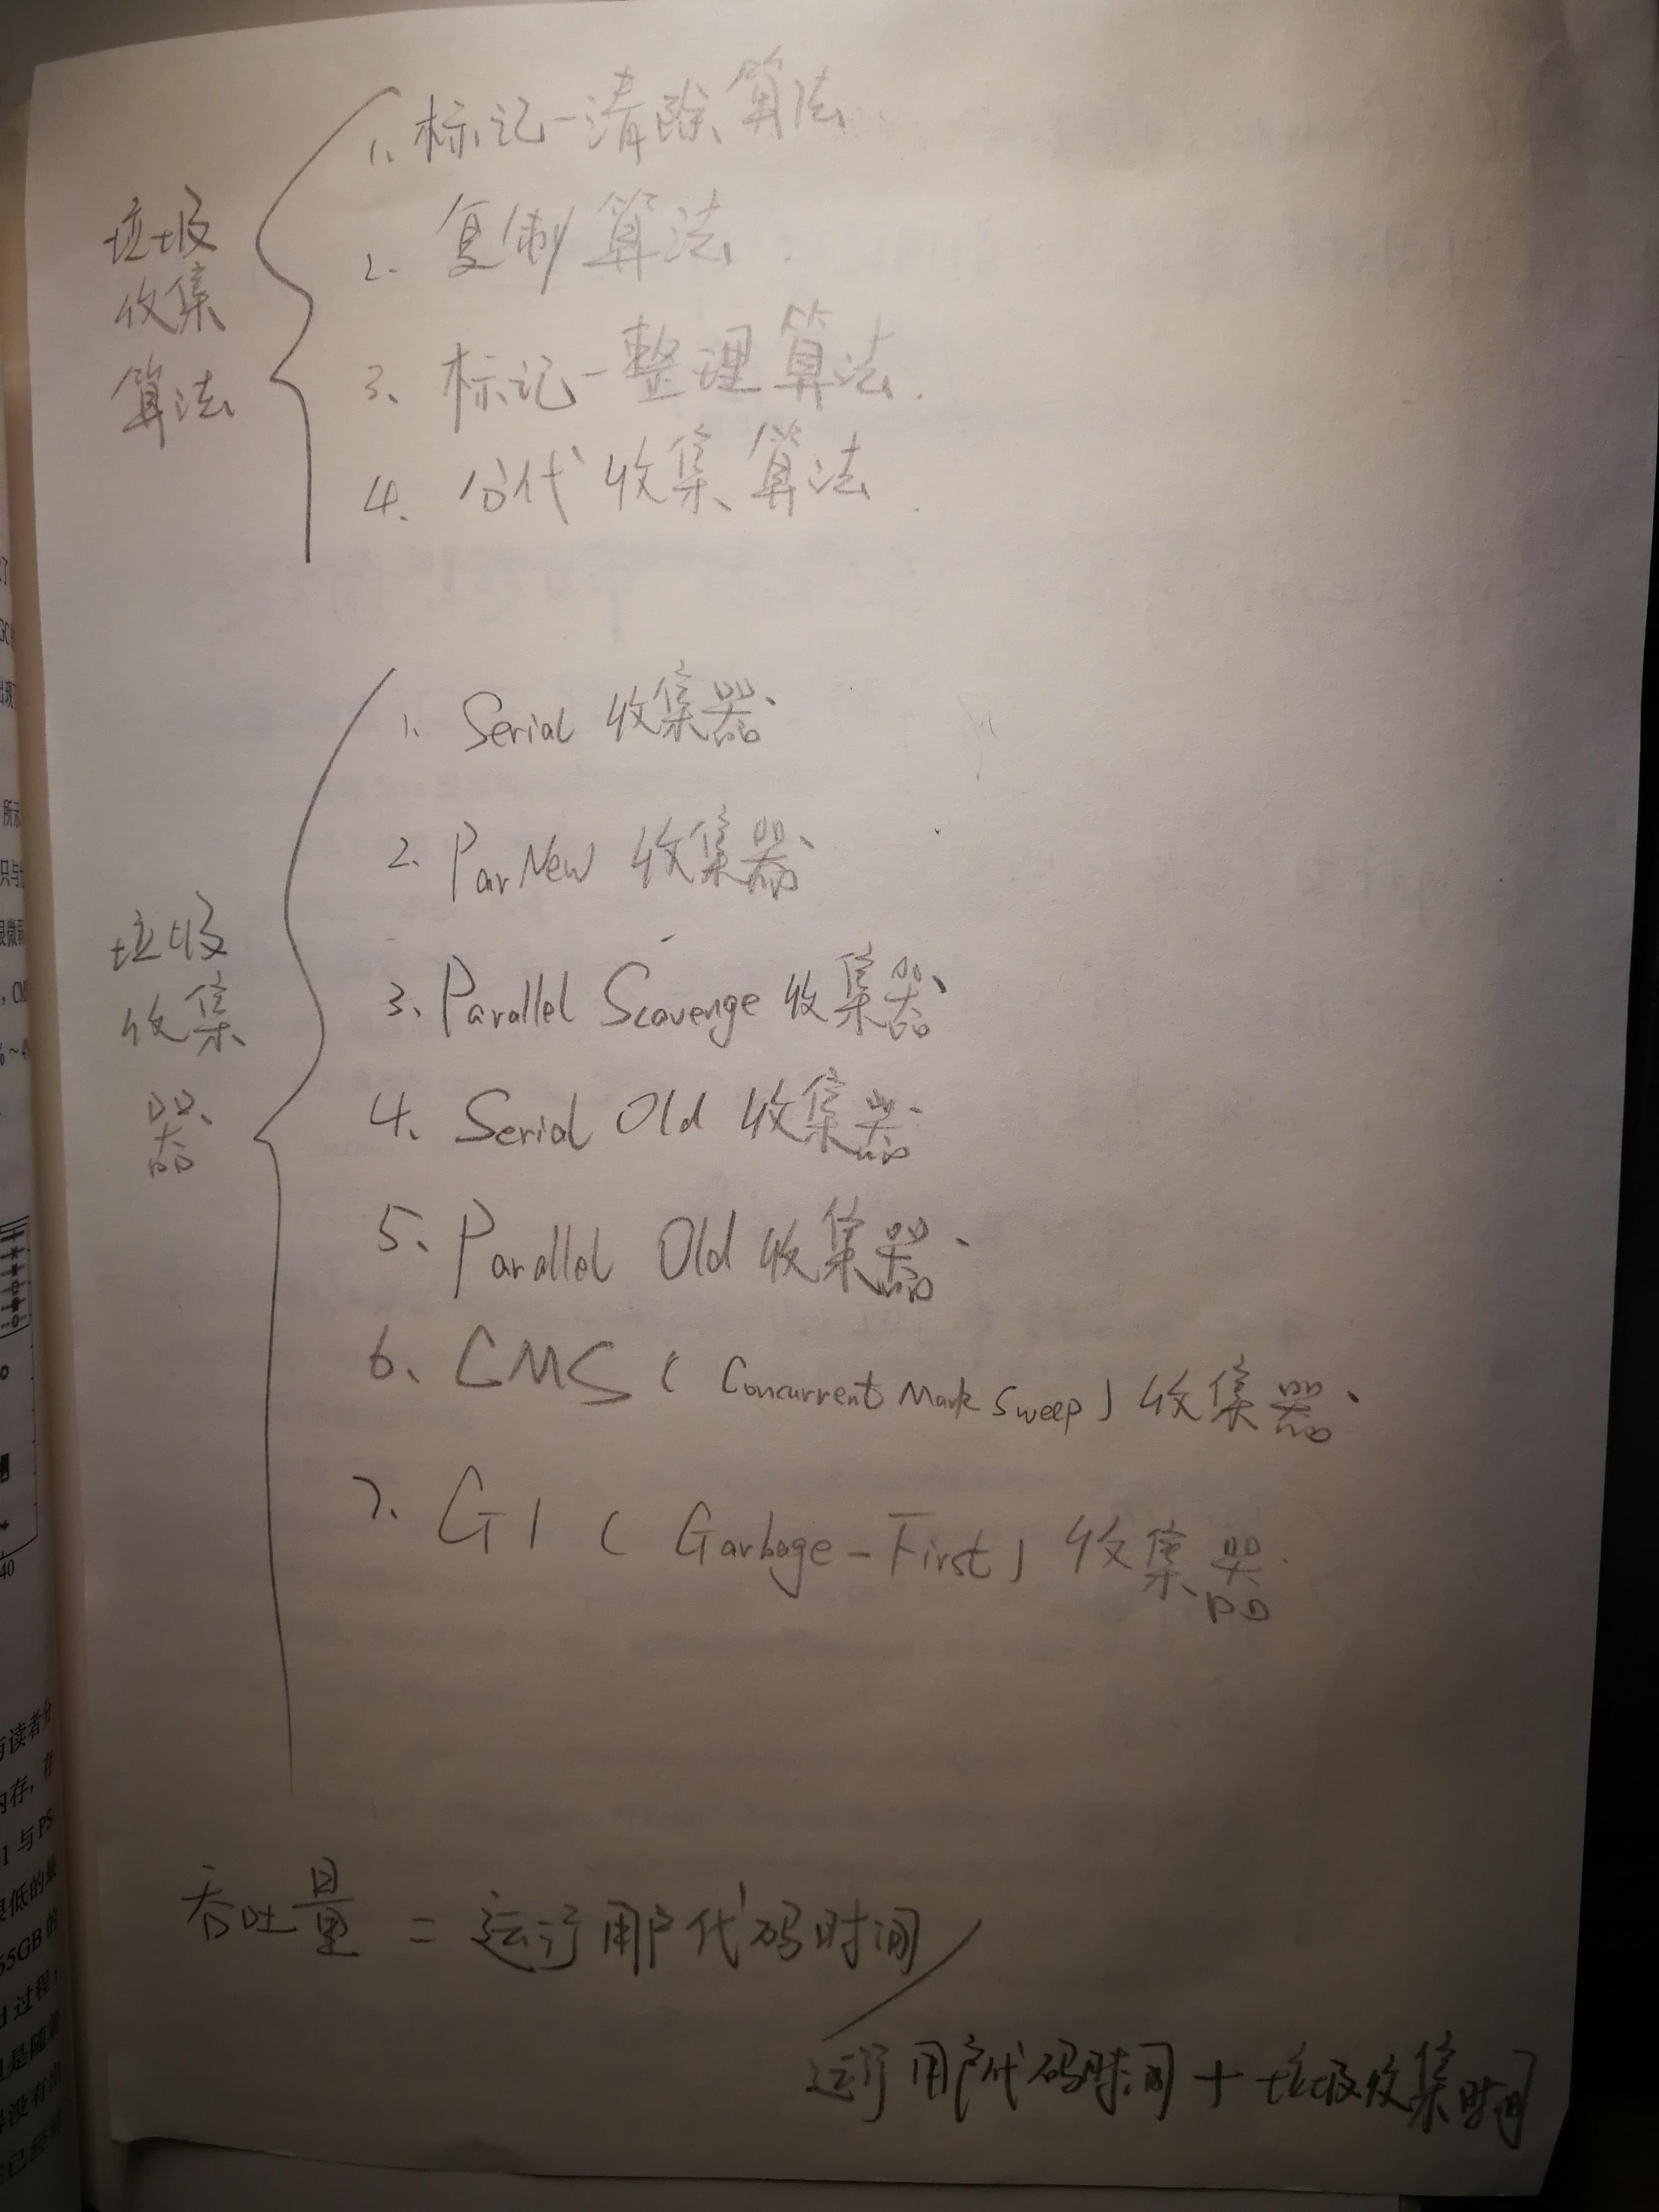 垃圾
收集
算法
1、标记-清除算法
2、复制算法
3、标记-整理算法.
4、分代收集算法
垃圾
收集
器
1、Serial 收集器
2、ParNew 收集器
3、Parallel Scavenge 收集器
4、Serial Old 收集器
5、Parallel Old 收集器
6、CMS ( Concurrent Mark Sweep ) 收集器
7、G1 ( Garbage-First ) 收集器
吞吐量 = 运行用户代码时间 /
运行用户代码时间 + 垃圾收集时间
所示
40
与读者分
内存，
1 与PS
55GB的
过程；